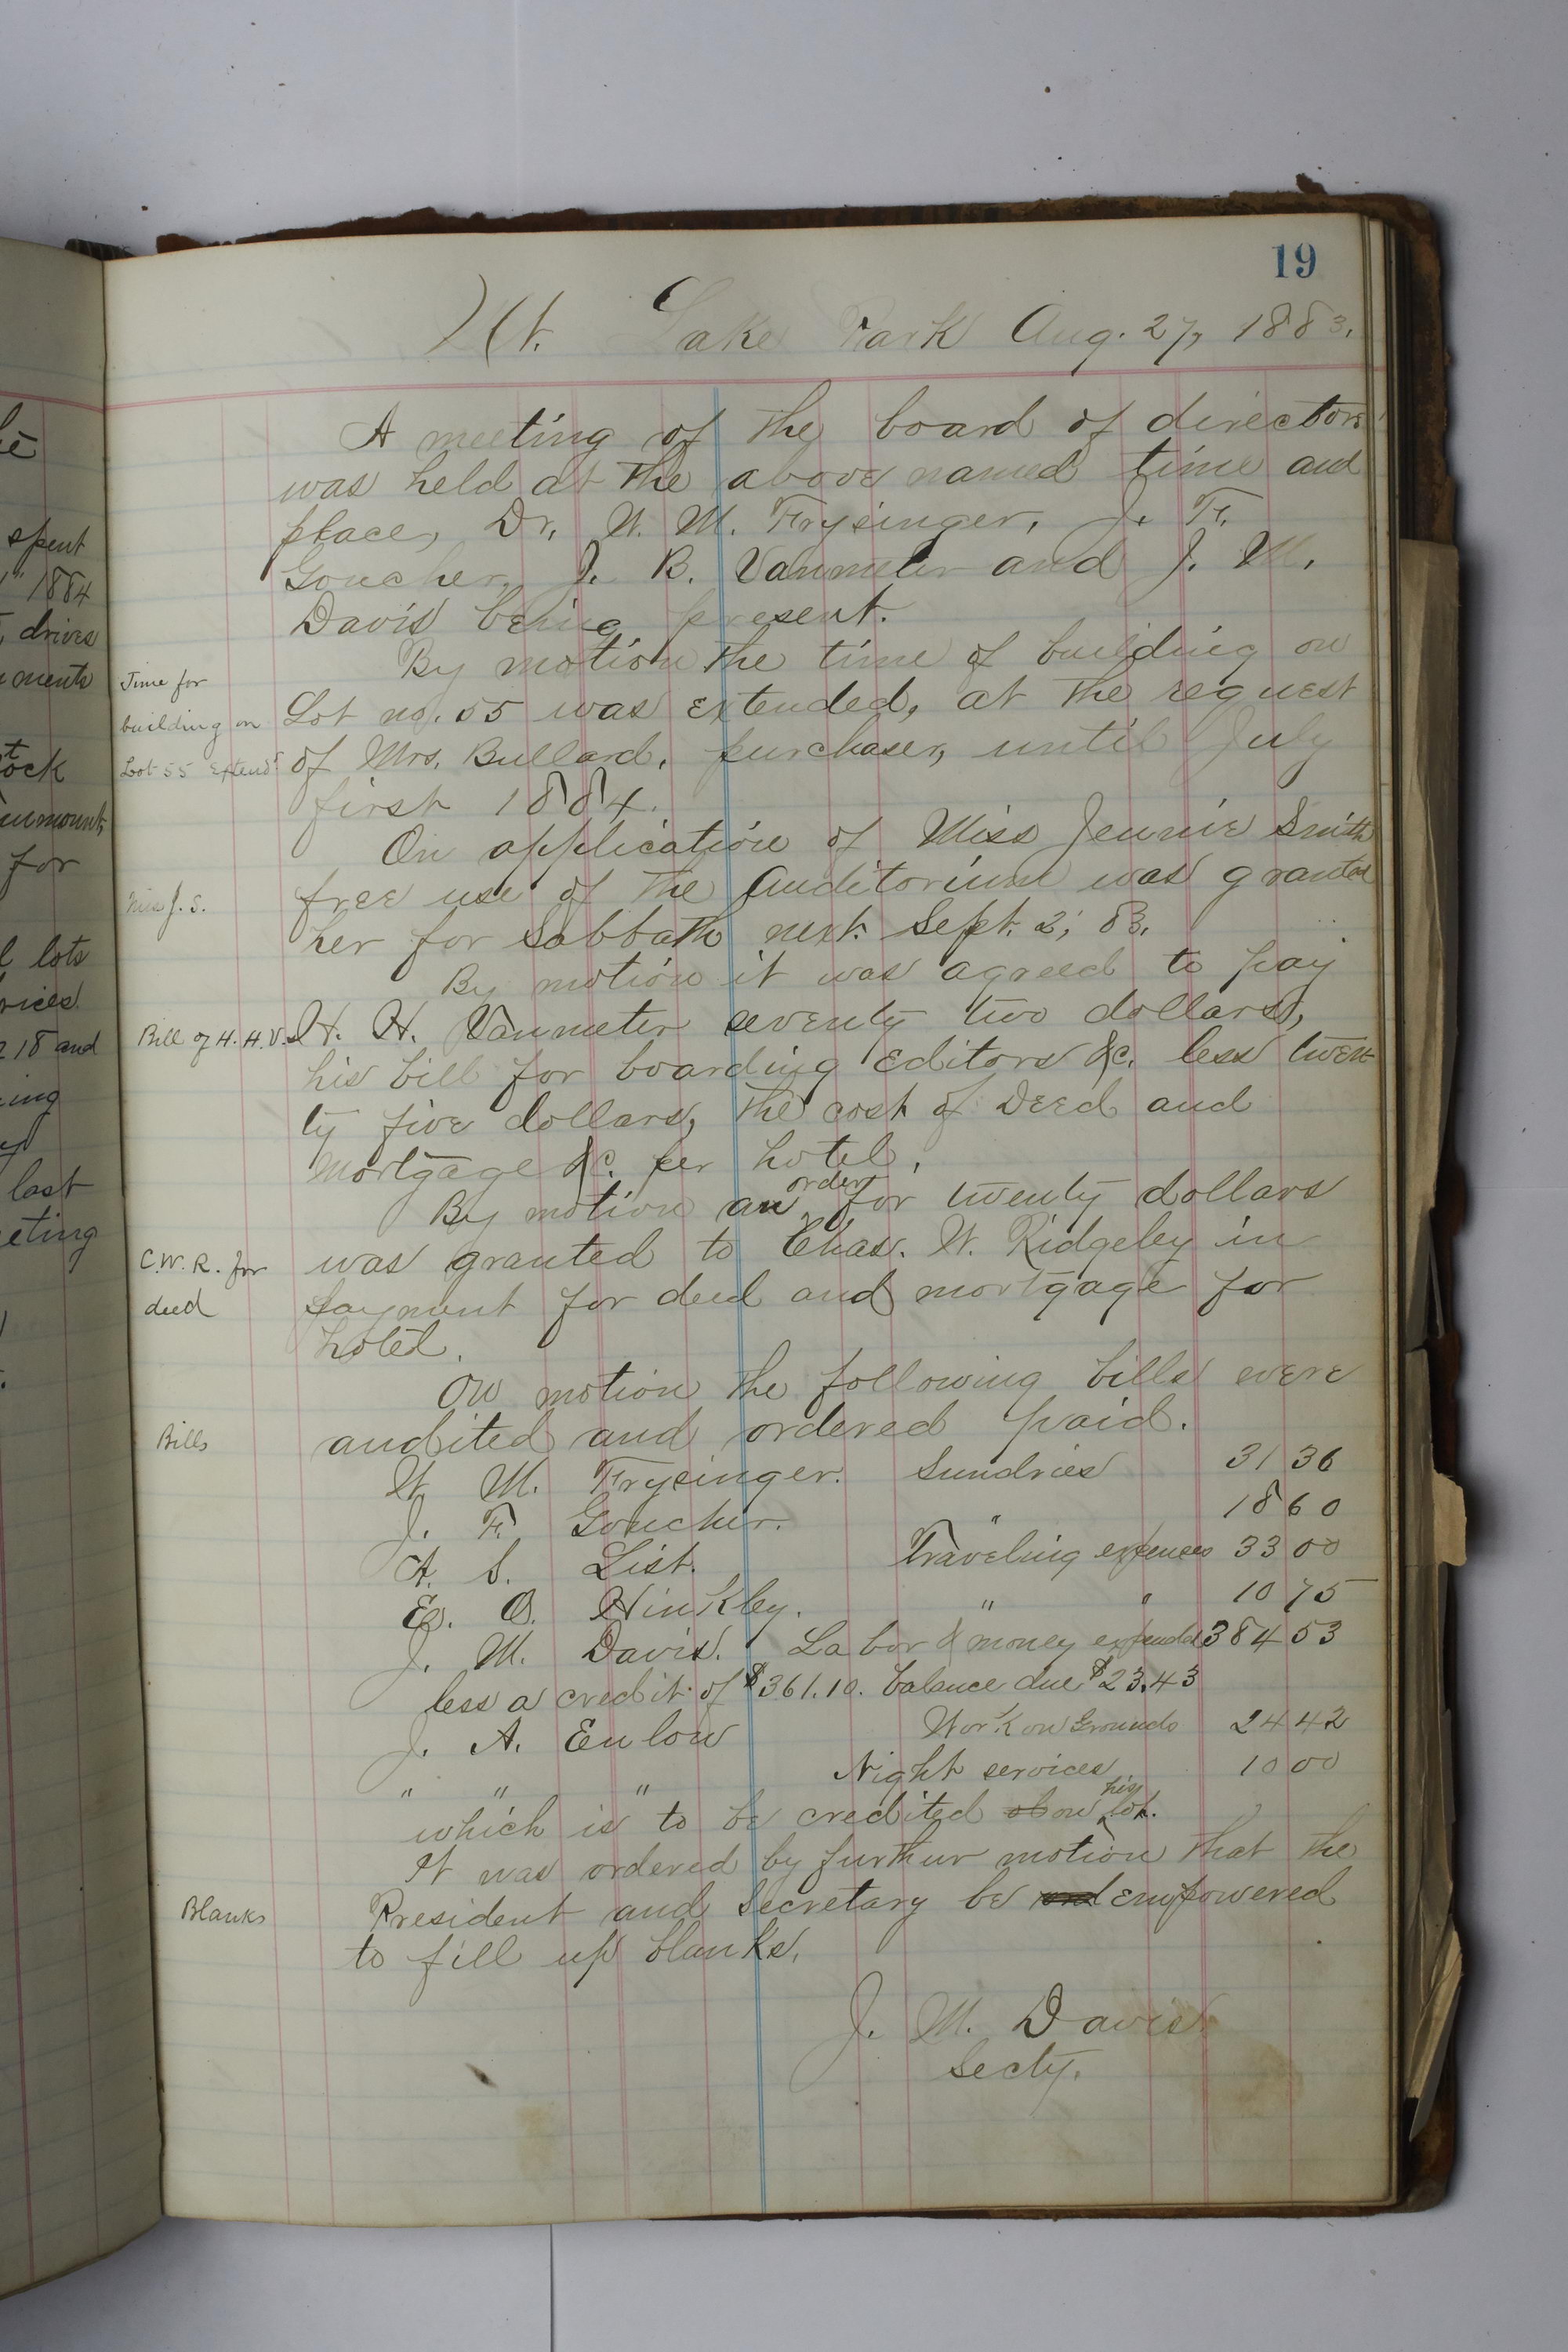 19
Mt. Lake Park Aug. 27, 1883.
A meeting of the board of directors
was held at the above named time and
place, Dr. W. M. Frysinger, J. F.
Goucher, J. B. Vanmeter and J. M.
Davis being present.
By motion the time of building on
Time for
building on
Lot 55 extend'd
Lot no. 55 was extended, at the request
of Mrs. Bullard, purchaser, until July
first 1884.
On application of Miss Jennie Smith
Miss J. S.
free use of the Auditorium was granted
her for Sabbath next. Sept. 2, 83.
By motion it was agreed to pay
Bill of H. H. V.
H. H. Vanmeter seventy two dollars,
his bill for boarding editors &c. less twen-
ty five dollars, the cost of Deed and
mortgage &c. per hotel.
By motion an order for twenty dollars
C. W. R. for
deed
was granted to Chas. W. Ridgeley in
payment for deed and mortgage for
hotel.
On motion the following bills were
Bills
audited and ordered paid.
W. M. Frysinger. Sundries 31 36
J. F. Goucher. " 18 60
A. S. List. Traveling expenses 33 00
E. O. Hinkley. " " 10 75
J. M. Davis. Labor & money expended 384 53
less a credit of $361.10. balance due $23.43
J. A. Enlow Work on Grounds 24 42
" " " Night services 10 00
which is to be credited on his lot.
It was ordered by further motion that the
Blanks
President and Secretary be empowered
to fill up blanks.
J. M. Davis
Secty.
spent
1884
drives
ock
for
lots
18 and
ing
last
eting